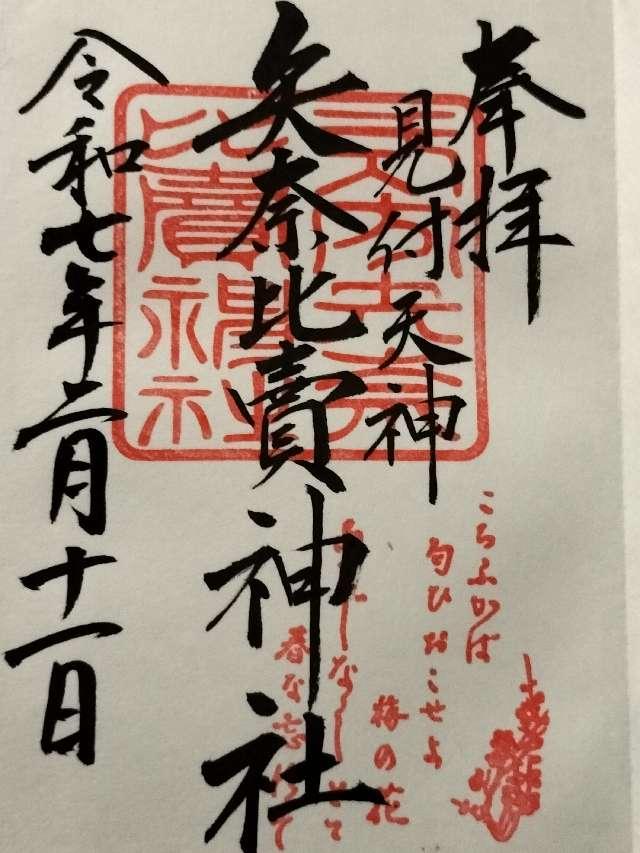 奉拝
見付天神
矢奈比賣神社
令和七年二月十一日
こちふかば
匂ひおこせよ
梅の花
あるじなしとて
春な忘れそ